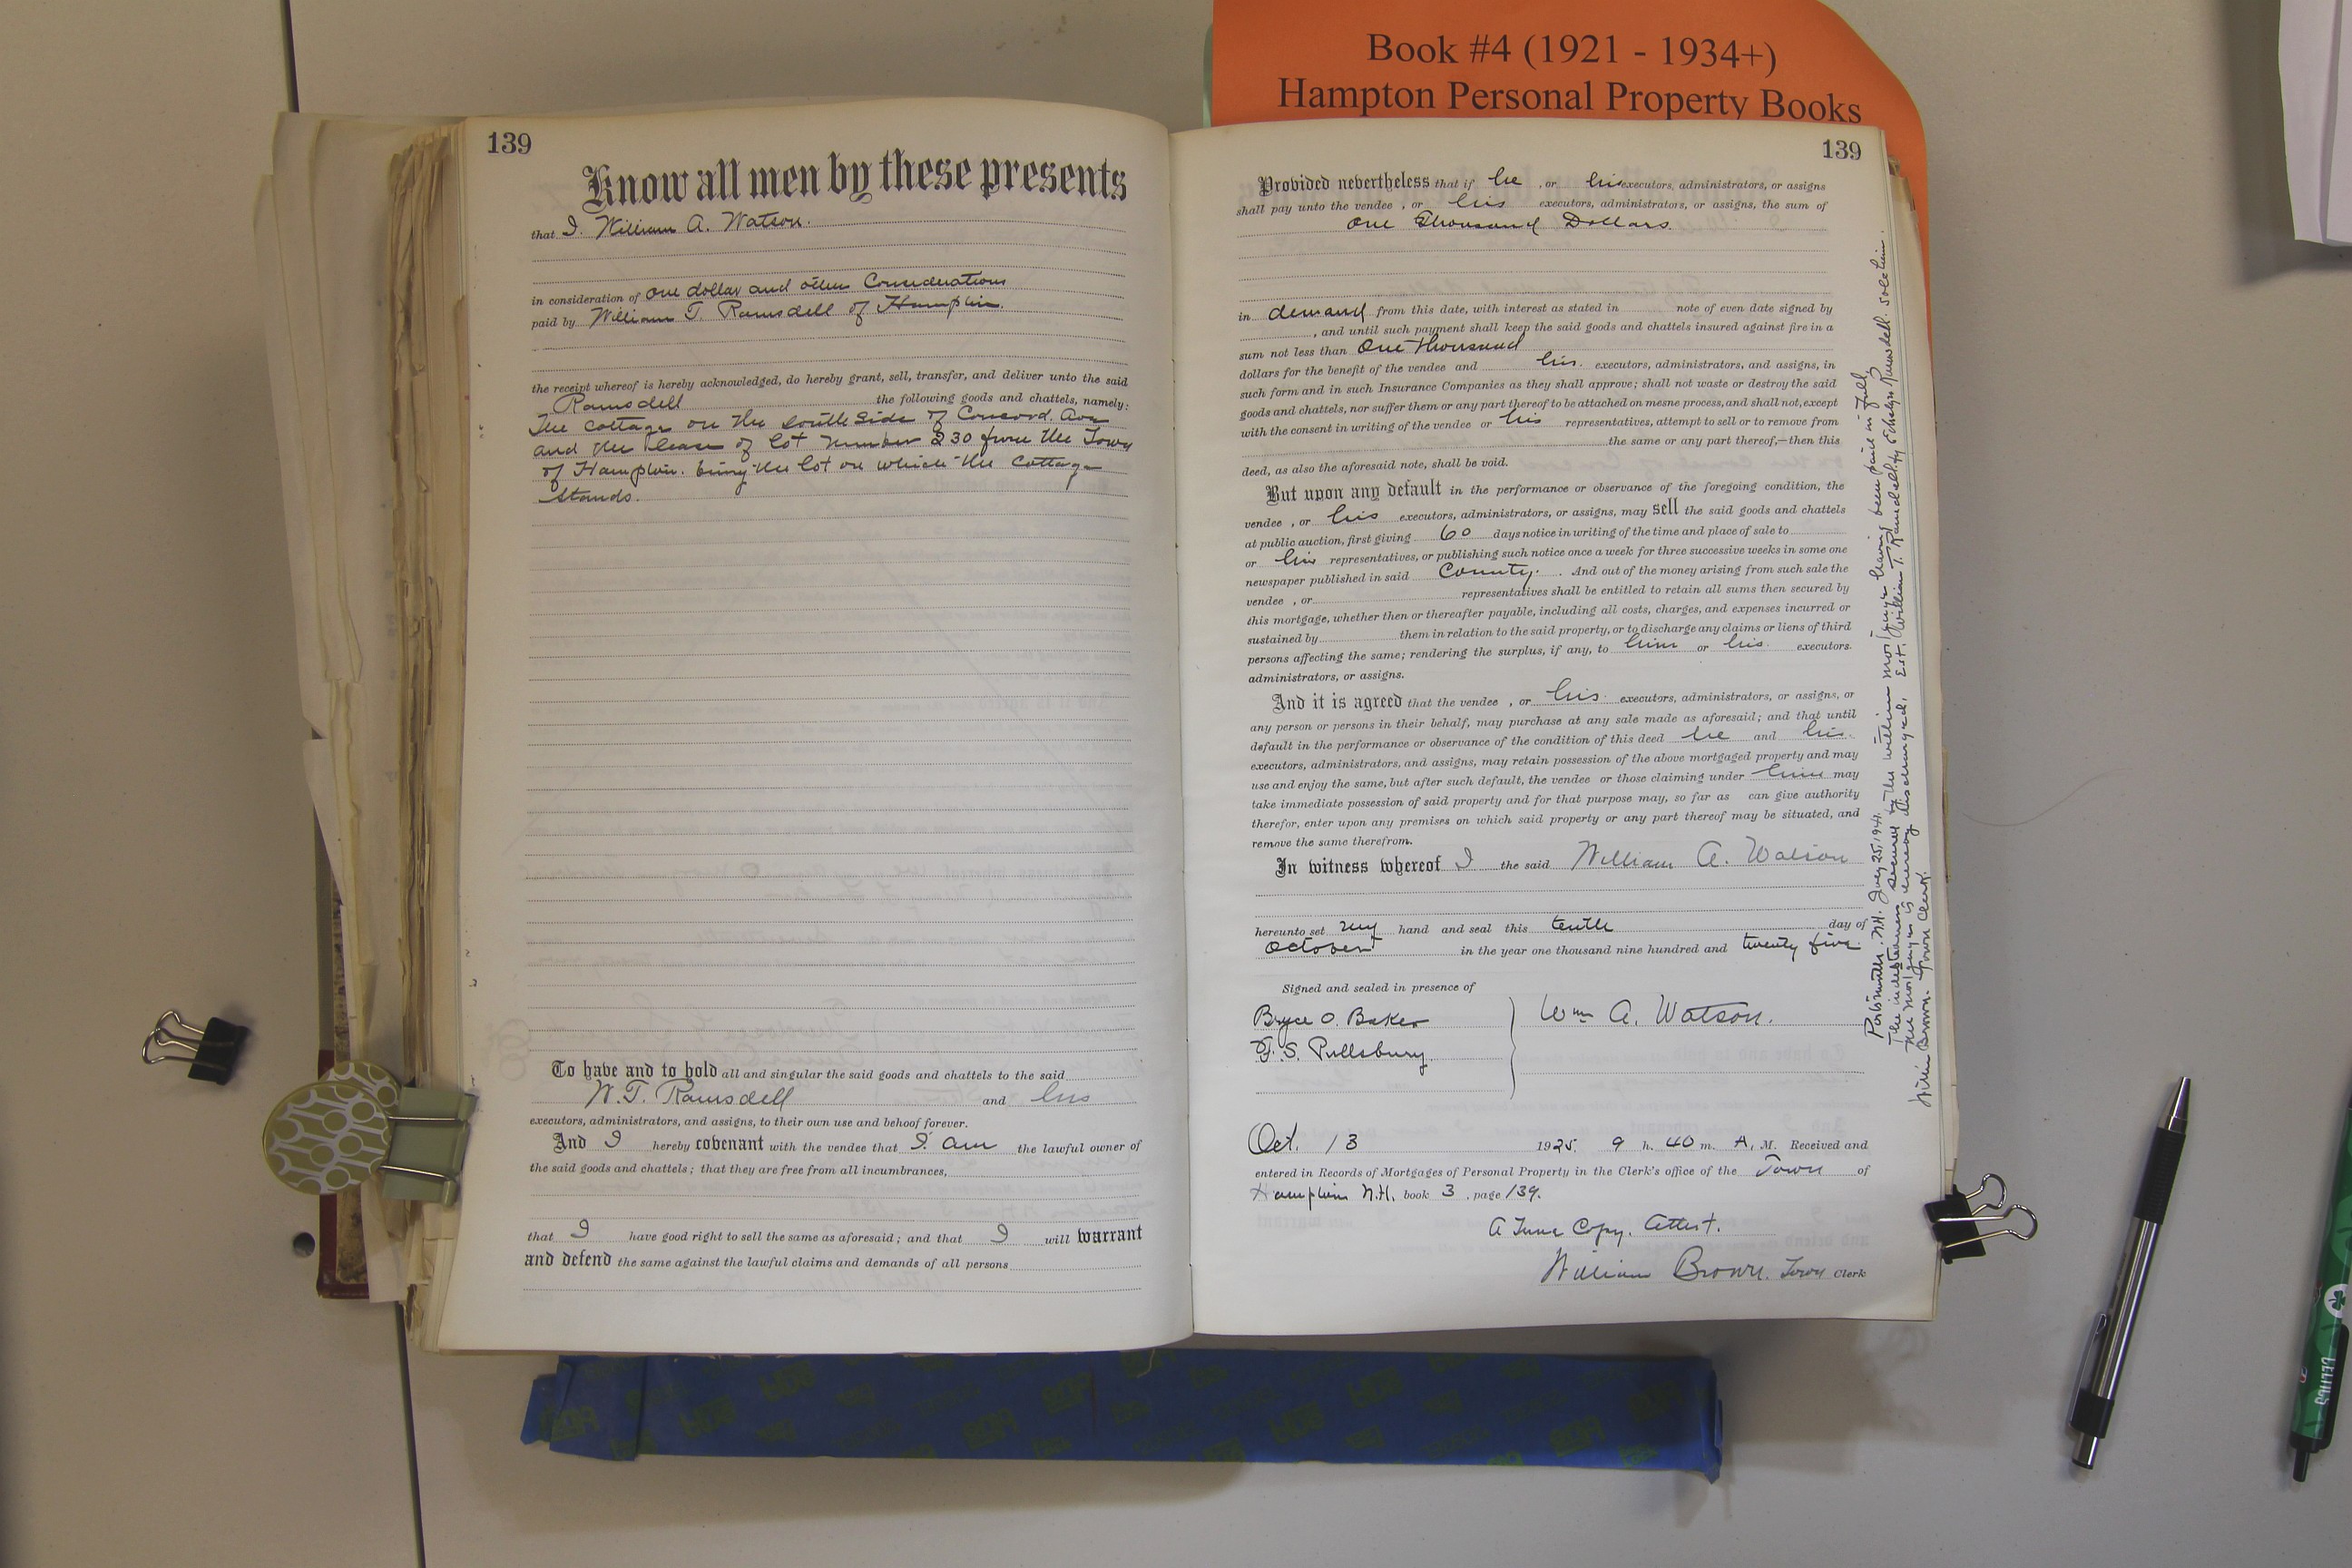 Book #4 (1921 - 1934+)
Hampton Personal Property Books
139
Know all men by these presents
that I. William A. Watson.
in consideration of one dollar and other Considerations
paid by William T. Ramsdell of Hampton.
the receipt whereof is hereby acknowledged, do hereby grant, sell, transfer, and deliver unto the said
Ramsdell the following goods and chattels, namely:
The cottage on the South Side of Concord Ave
and the lease of lot number 230 from the Town
of Hampton. being the lot on which the cottage
Stands.
To have and to hold all and singular the said goods and chattels to the said
W. T. Ramsdell and his
executors, administrators, and assigns, to their own use and behoof forever.
And I hereby covenant with the vendee that I am the lawful owner of
the said goods and chattels; that they are free from all incumbrances,
that I have good right to sell the same as aforesaid; and that I will warrant
and defend the same against the lawful claims and demands of all persons
139
Provided nevertheless that if he , or his executors, administrators, or assigns
shall pay unto the vendee , or his executors, administrators, or assigns, the sum of
One Thousand Dollars.
in demand from this date, with interest as stated in note of even date signed by
, and until such payment shall keep the said goods and chattels insured against fire in a
sum not less than One Thousand
dollars for the benefit of the vendee and his. executors, administrators, and assigns, in
such form and in such Insurance Companies as they shall approve; shall not waste or destroy the said
goods and chattels, nor suffer them or any part thereof to be attached on mesne process, and shall not, except
with the consent in writing of the vendee or his representatives, attempt to sell or to remove from
the same or any part thereof,—then this
deed, as also the aforesaid note, shall be void.
But upon any default in the performance or observance of the foregoing condition, the
vendee , or his executors, administrators, or assigns, may sell the said goods and chattels
at public auction, first giving 60 days notice in writing of the time and place of sale to
or his representatives, or publishing such notice once a week for three successive weeks in some one
newspaper published in said County. . And out of the money arising from such sale the
vendee , or representatives shall be entitled to retain all sums then secured by
this mortgage, whether then or thereafter payable, including all costs, charges, and expenses incurred or
sustained by them in relation to the said property, or to discharge any claims or liens of third
persons affecting the same; rendering the surplus, if any, to him or his. executors.
administrators, or assigns.
And it is agreed that the vendee , or his. executors, administrators, or assigns, or
any person or persons in their behalf, may purchase at any sale made as aforesaid; and that until
default in the performance or observance of the condition of this deed he and his.
executors, administrators, and assigns, may retain possession of the above mortgaged property and may
use and enjoy the same, but after such default, the vendee or those claiming under him may
take immediate possession of said property and for that purpose may, so far as can give authority
therefor, enter upon any premises on which said property or any part thereof may be situated, and
remove the same therefrom.
In witness whereof I the said William A. Watson
hereunto set my hand and seal this tenth day of
October in the year one thousand nine hundred and twenty five.
Signed and sealed in presence of
Bryce O. Baker
F. S. Pillsbury.
Wm A. Watson.
Oct. 13 1925. 9 h. 40 m. A. M. Received and
entered in Records of Mortgages of Personal Property in the Clerk's office of the Town of
Hampton N.H. book 3 , page 139.
A True Copy. Attest.
William Brown. Town Clerk
Portsmouth. N.H. 25, 1941.
The indebtedness secured by the within mortgage having been paid in full,
the mortgage is hereby discharged. Est. William T. Ramsdell. by Evelyn Ramsdell.
William Brown. Town Clerk.